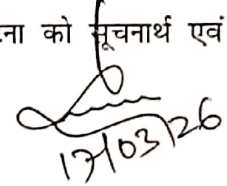 ना को सूचनार्थ एवं
17/03/26